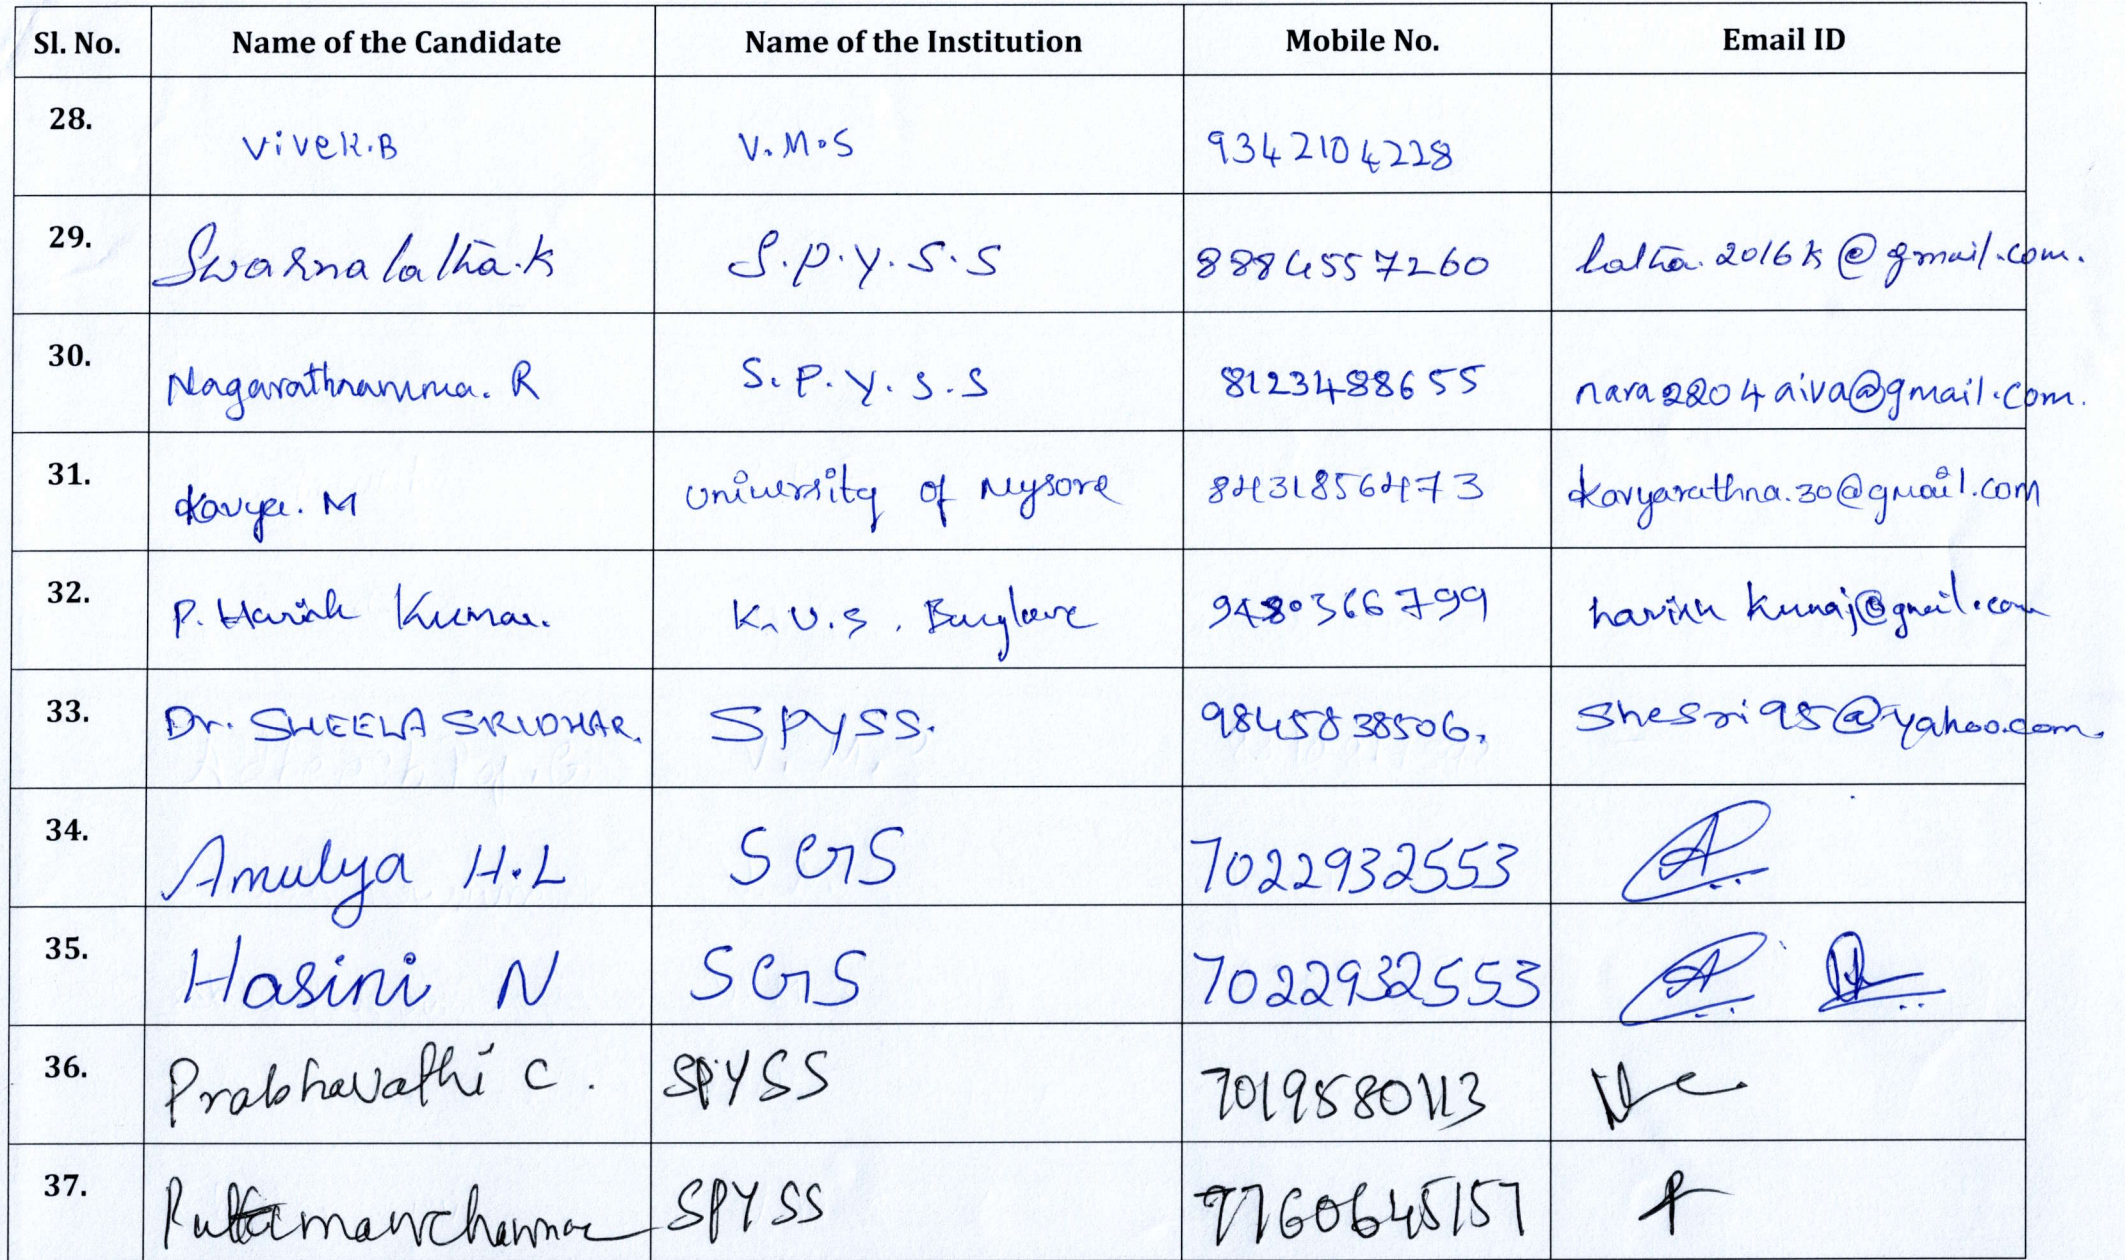 Sl. No. Name of the Candidate Name of the Institution Mobile No. Email ID
28. Vivek.B V.M.S 9342104228
29. Swarnalatha.k S.P.Y.S.S 8884557260 latha.2016k@gmail.com.
30. Nagarathnamma. R S.P.Y.S.S 8123488655 nara2204aiva@gmail.com.
31. Kavya. M University of Mysore 8431856473 kavyarathna.30@gmail.com
32. P. Harish Kumar. K.U.S. 9480366799
33. Dr. SHEELA SRIDHAR. SPYSS. 9845838506. Shesri95@yahoo.com.
34. Amulya H.L SGS 7022932553
35. Hasini N SGS 7022932553
36. Prabhavathi C. SPYSS 7019580113
37. SPYSS